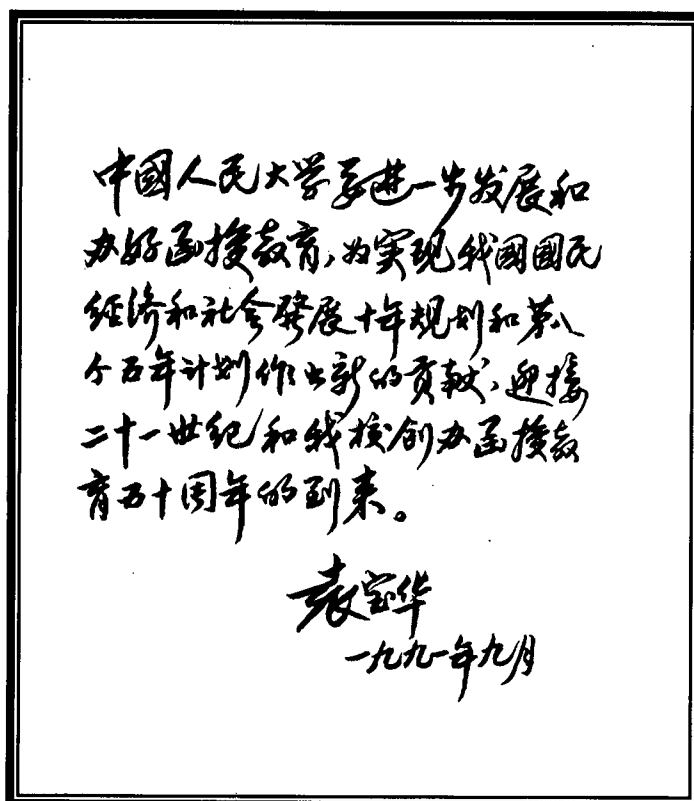 中國人民大学要进一步发展和
办好函授教育，为实现我國國民
经济和社会發展十年规划和第八
个五年计划作出新的贡献，迎接
二十一世纪和我校创办函授教
育五十周年的到来。
袁宝华
一九九一年九月